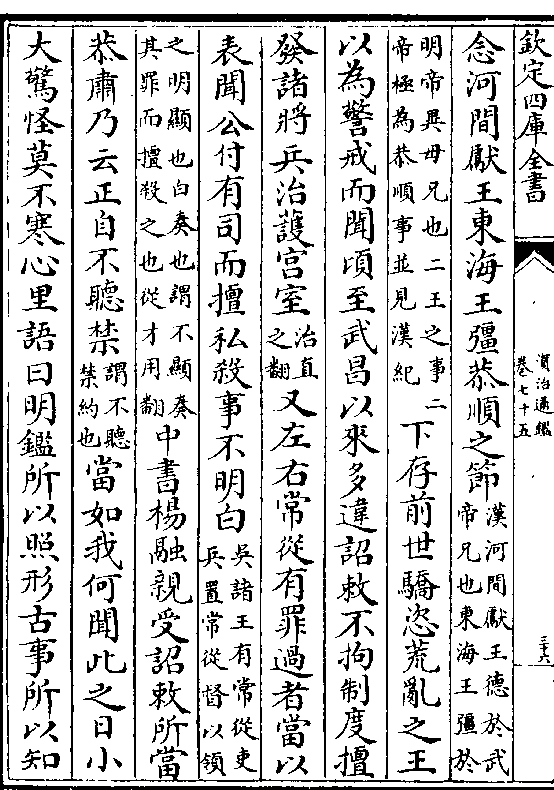 欽定四庫全書
資治通鑑
卷七十五
三十六
念河間獻王東海王彊恭順之節漢河間獻王德於武帝兄也東海王彊於
明帝異母兄也二王之事二帝極為恭順事並見漢紀下存前世驕恣荒亂之王
以為警戒而聞頃至武昌以來多違詔敕不拘制度擅
發諸將兵治護宮室治直之翻又左右常從有罪過者當以
表聞公付有司而擅私殺事不明白吳諸王有常從吏兵置常從督以領
之明顯也白奏也謂不顯奏其罪而擅殺之也從才用翻中書楊融親受詔敕所當
恭肅乃云正自不聽禁謂不聽禁約也當如我何聞此之日小
大驚怪莫不寒心里語曰明鑑所以照形古事所以知